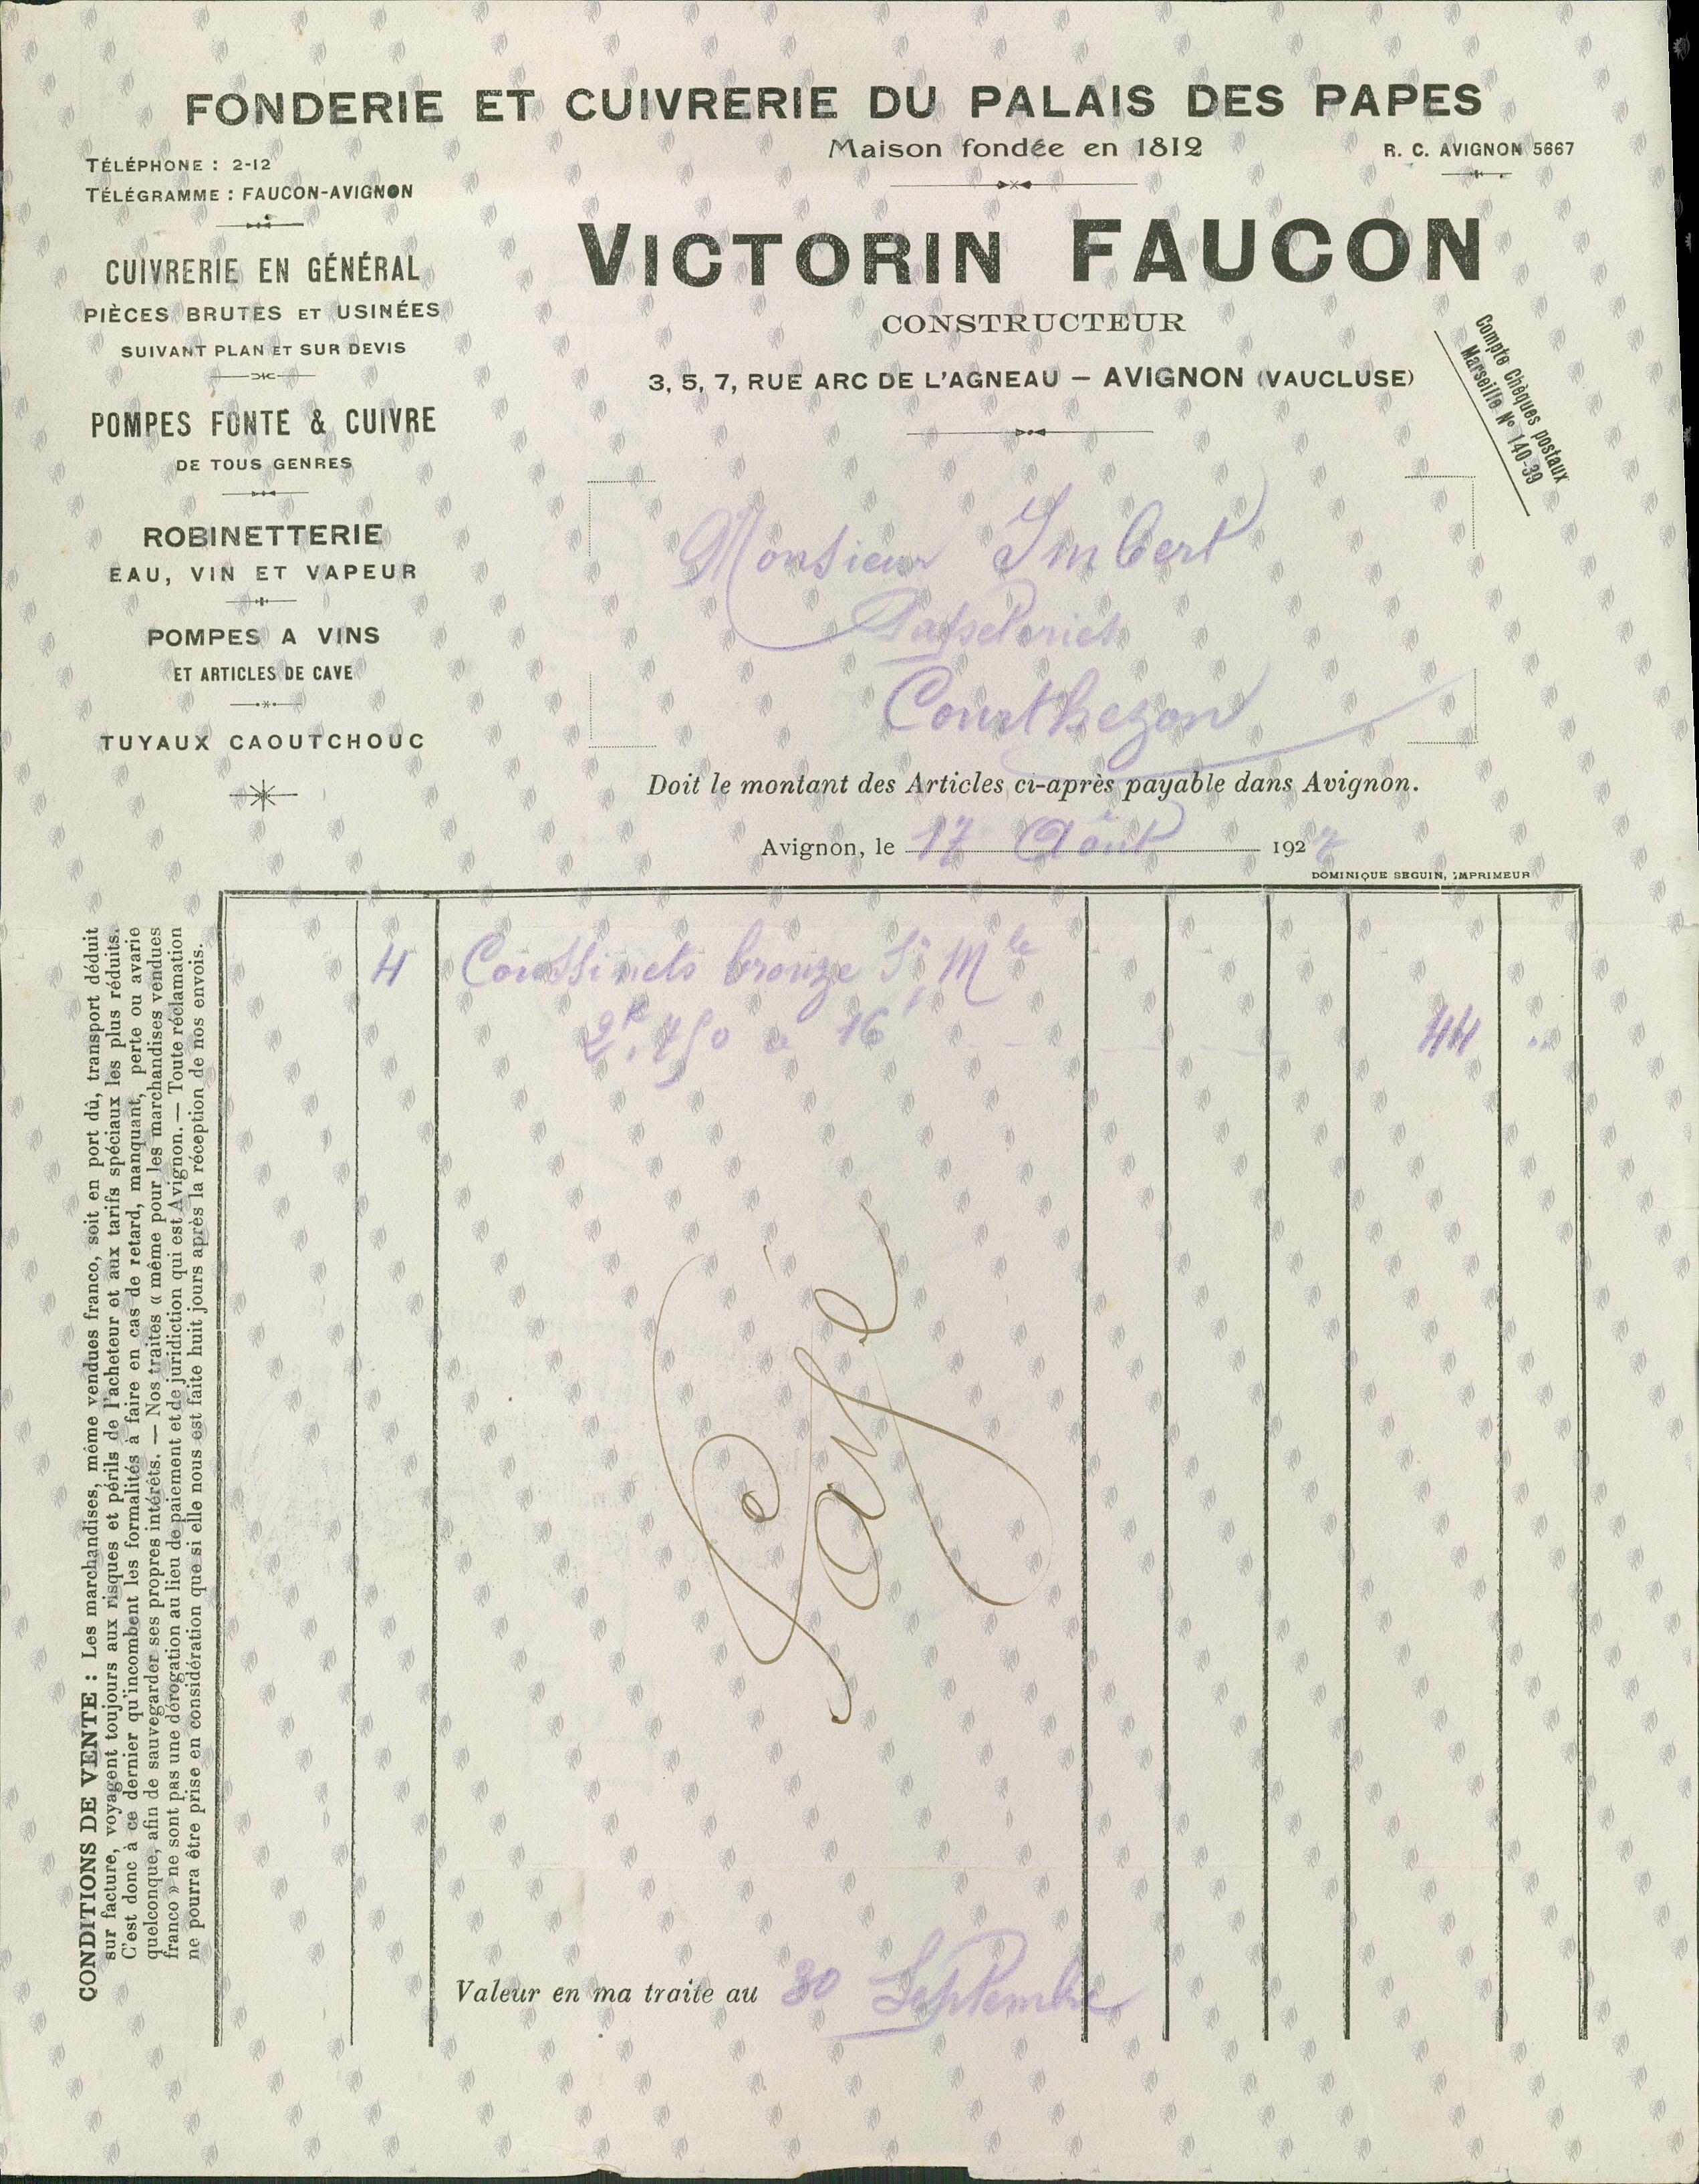 FONDERIE ET CUIVRERIE DU PALAIS DES PAPES
Maison fondée en 1812
R. C. AVIGNON 5667
TÉLÉPHONE : 2-12
TÉLÉGRAMME : FAUCON-AVIGNON
VICTORIN FAUCON
CONSTRUCTEUR
3, 5, 7, RUE ARC DE L'AGNEAU — AVIGNON (VAUCLUSE)
Compte Chèques postaux
Marseille Nº 140-39
CUIVRERIE EN GÉNÉRAL
PIÈCES BRUTES ET USINÉES
SUIVANT PLAN ET SUR DEVIS
POMPES FONTE & CUIVRE
DE TOUS GENRES
ROBINETTERIE
EAU, VIN ET VAPEUR
POMPES A VINS
ET ARTICLES DE CAVE
TUYAUX CAOUTCHOUC
Monsieur Imbert
Courthezon
Doit le montant des Articles ci-après payable dans Avignon.
Avignon, le 17 Août 1927
DOMINIQUE SEGUIN, IMPRIMEUR
CONDITIONS DE VENTE : Les marchandises, même vendues franco, soit en port dû, transport déduit
sur facture, voyagent toujours aux risques et périls de l'acheteur et aux tarifs spéciaux les plus réduits.
C'est donc à ce dernier qu'incombent les formalités à faire en cas de retard, manquant, perte ou avarie
quelconque, afin de sauvegarder ses propres intérêts. — Nos traites « même pour les marchandises vendues
franco » ne sont pas une dérogation au lieu de paiement et de juridiction qui est Avignon. — Toute réclamation
ne pourra être prise en considération que si elle nous est faite huit jours après la réception de nos envois.
4 Coussinets bronze St Mle
2k,750 à 16f 44 "
Payé
Valeur en ma traite au 30 Septembre